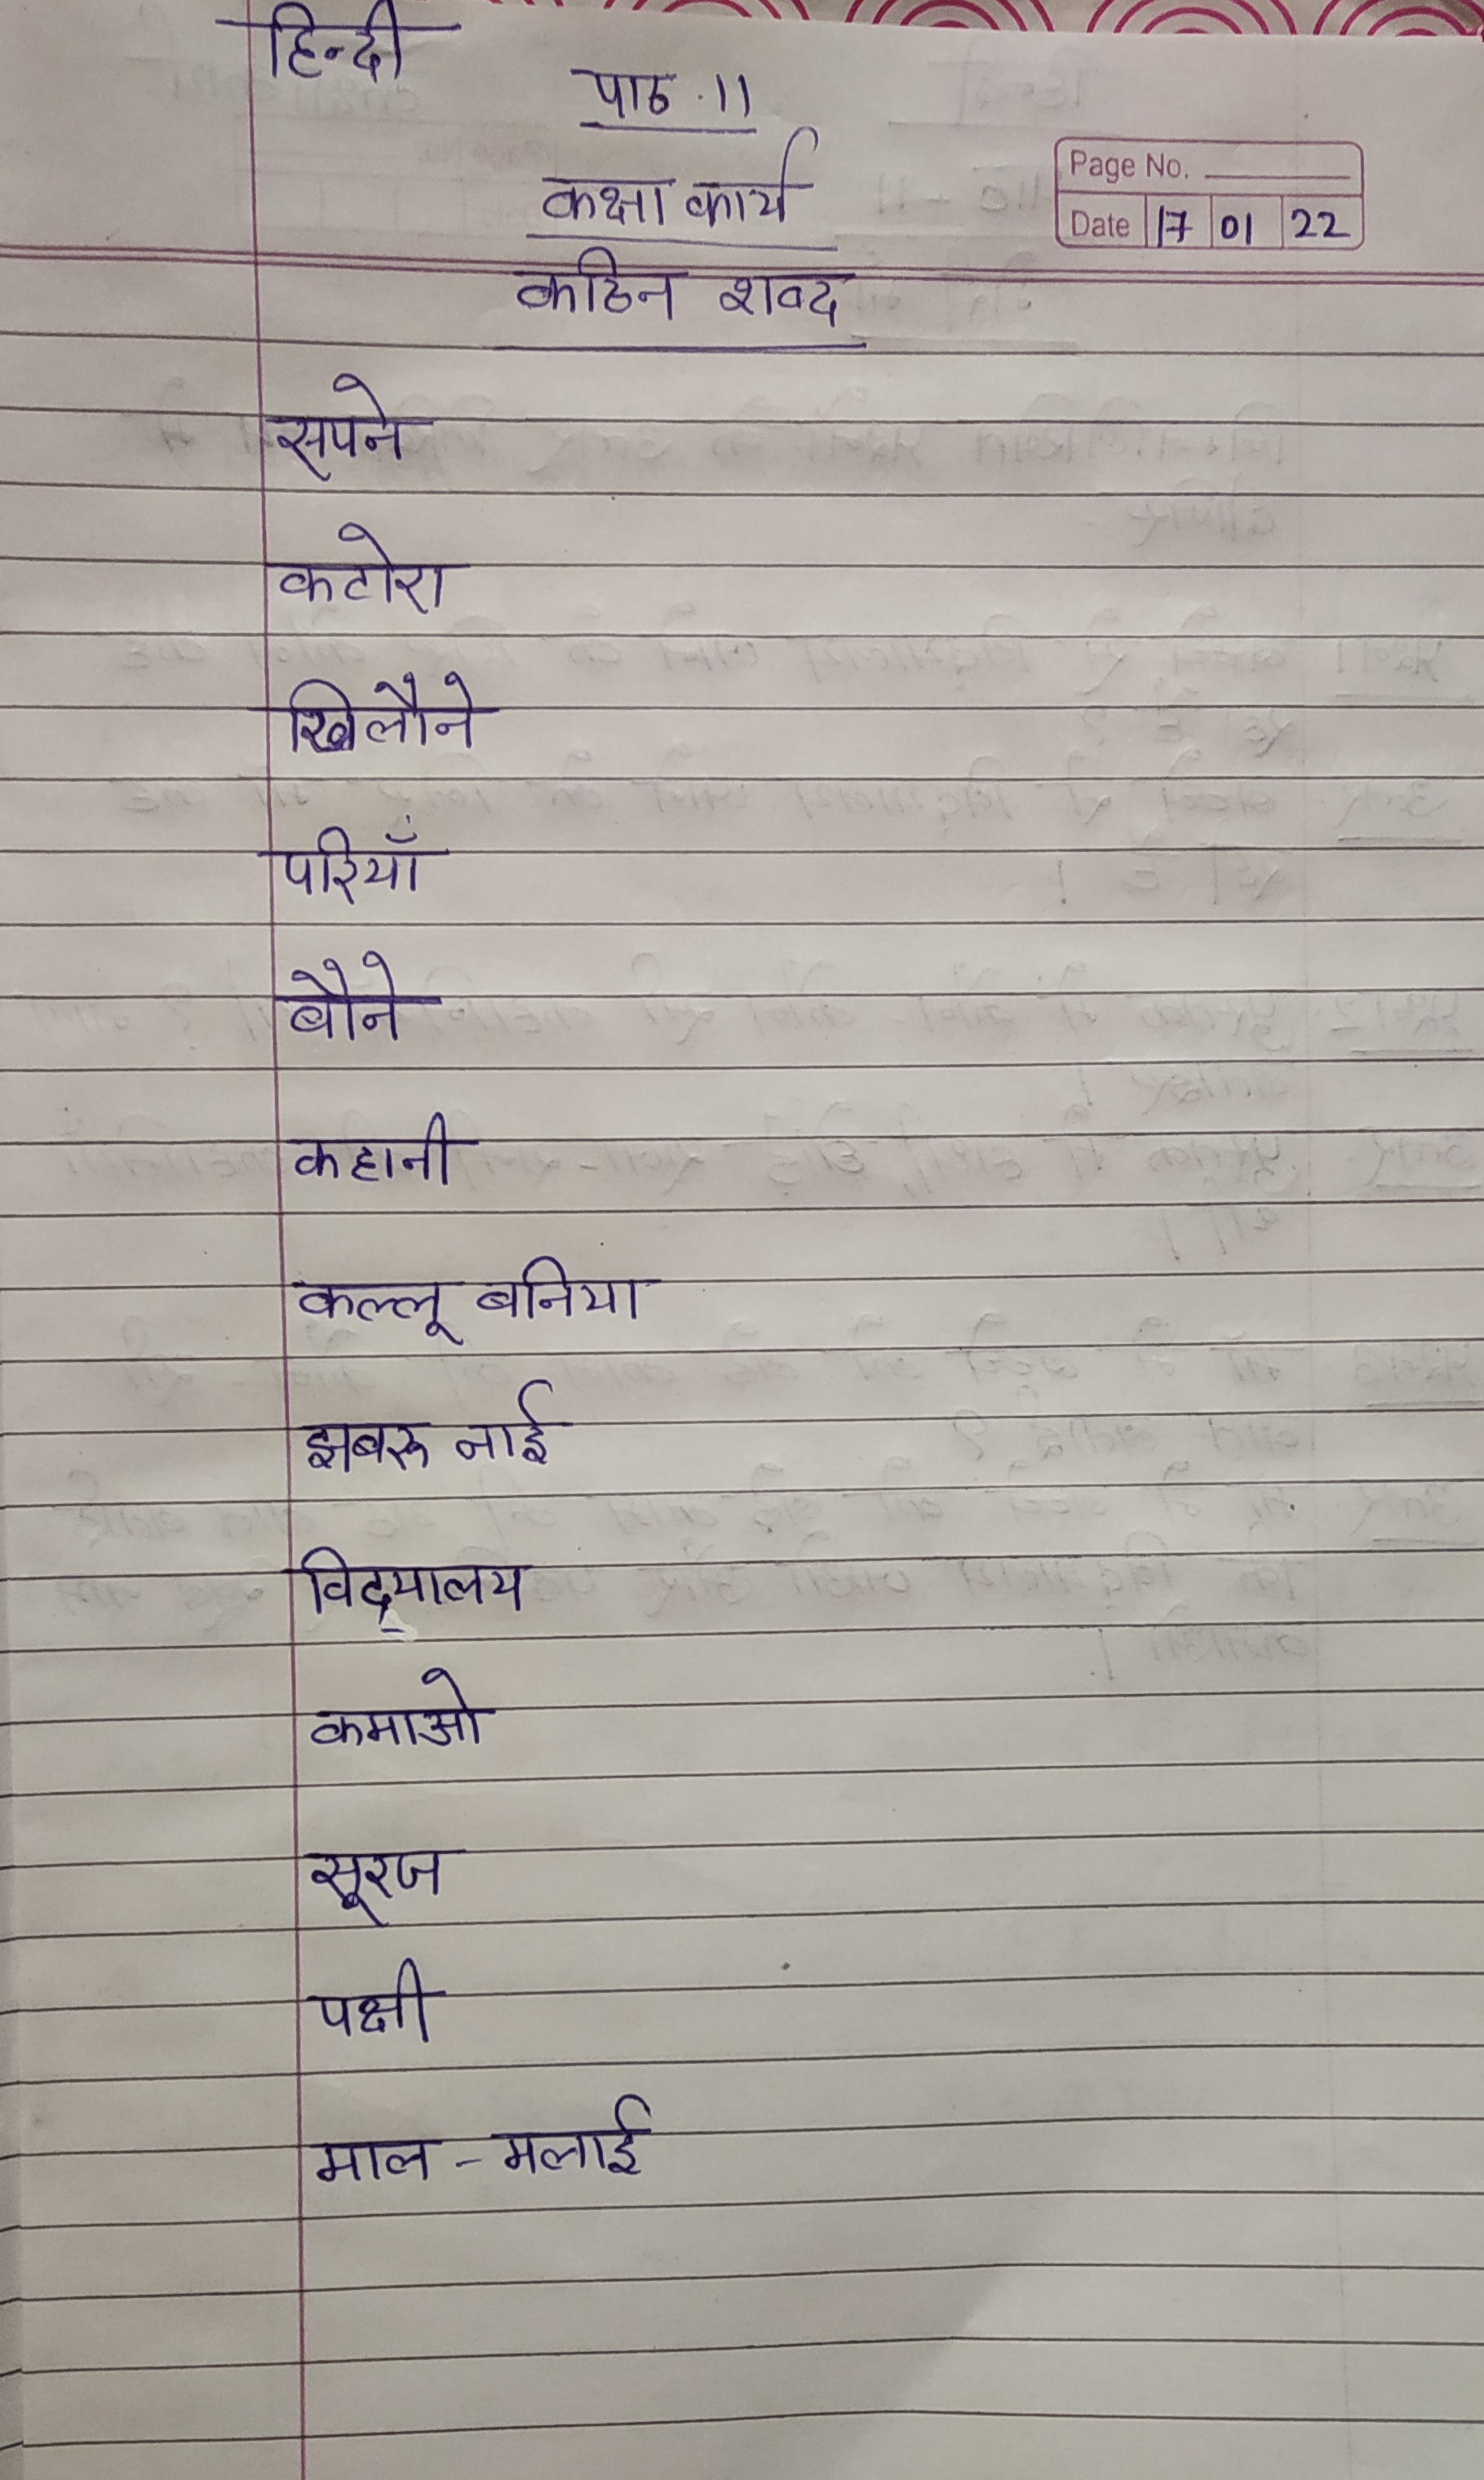 हिन्दी
पाठ.11
कक्षा कार्य
Page No.
Date 17 01 22
कठिन शब्द
सपने
कटोरा
खिलौने
परियाँ
बौने
कहानी
कल्लू बनिया
झबरू नाई
विद्यालय
कमाओ
सूरज
पक्षी
माल - मलाई